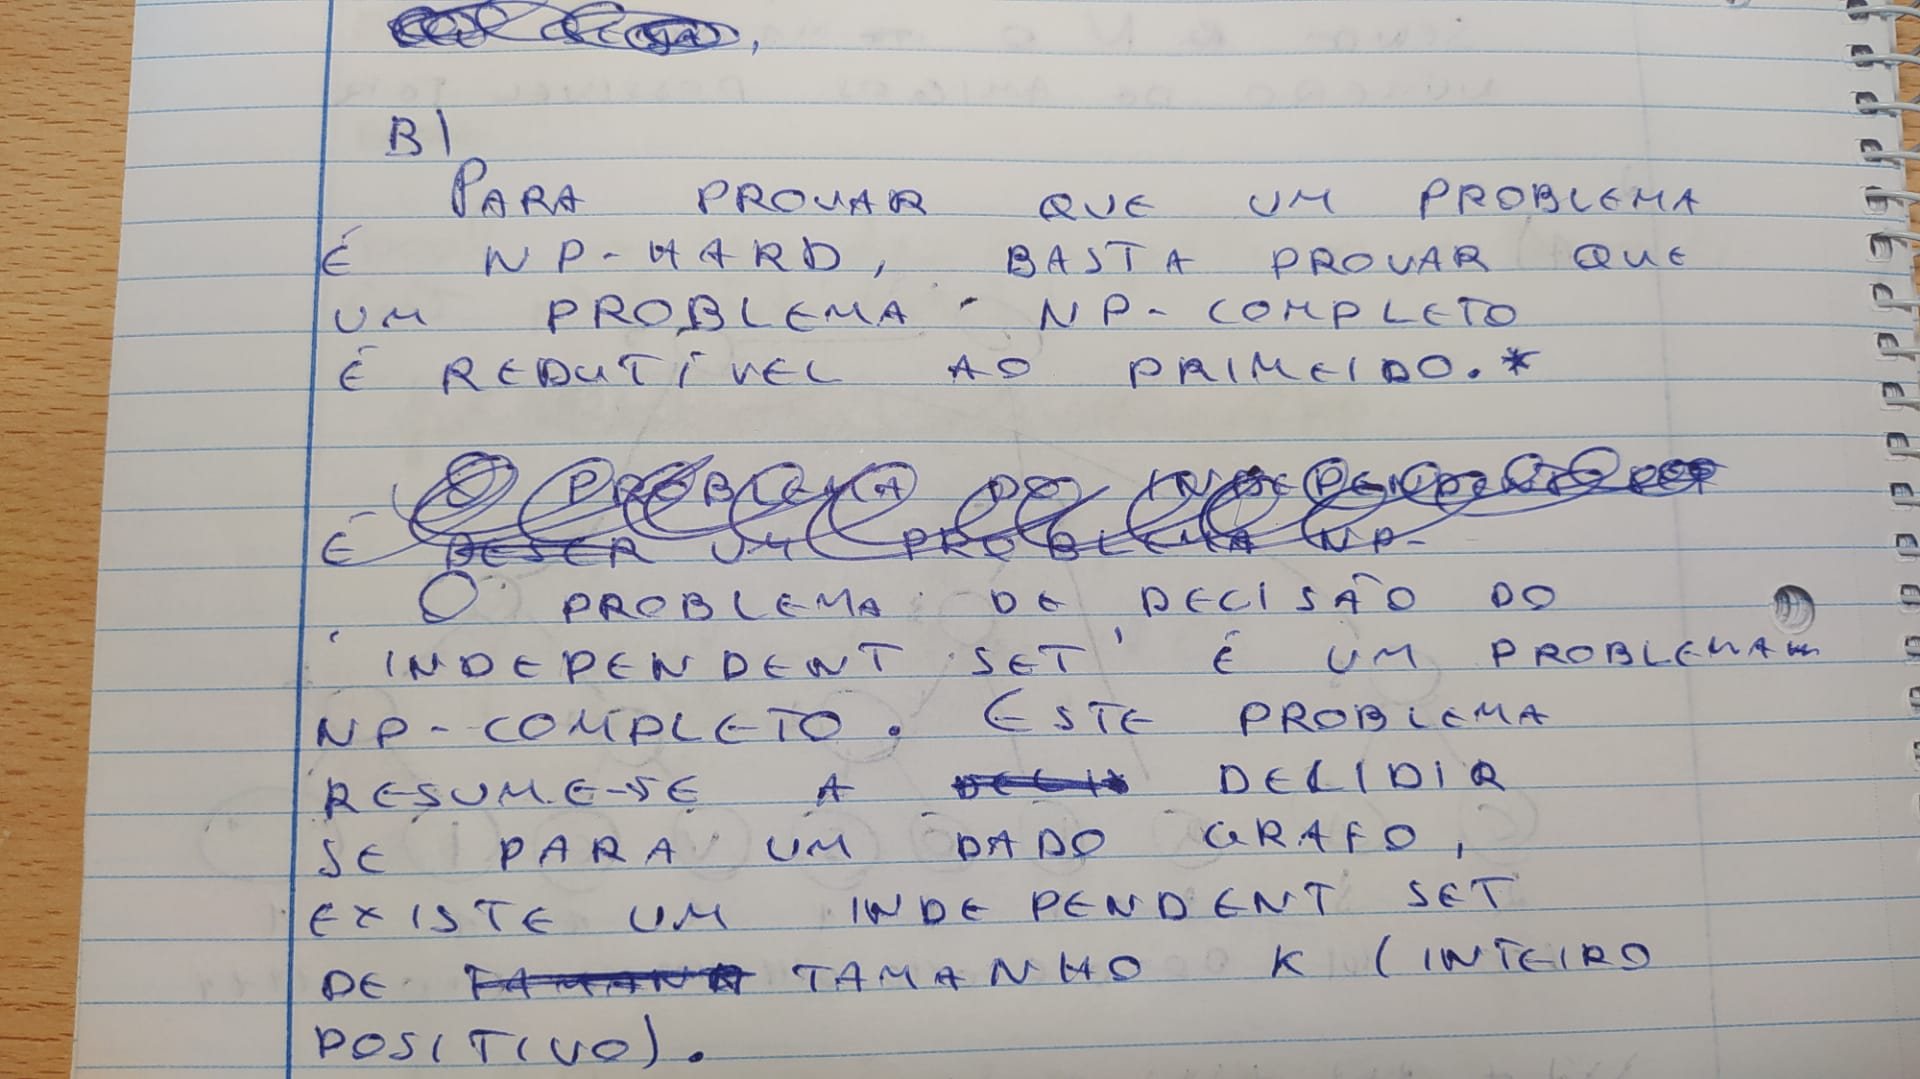 B)
PARA PROVAR QUE UM PROBLEMA
É NP-HARD, BASTA PROVAR QUE
UM PROBLEMA NP-COMPLETO
É REDUTÍVEL AO PRIMEIDO.*
O PROBLEMA DO
É DESER UM PROBLEMA NP-
O PROBLEMA DE DECISÃO DO
'INDEPENDENT SET' É UM PROBLEMA
NP-COMPLETO. ESTE PROBLEMA
RESUME-SE A DECIDIR
SE PARA UM DADO GRAFO,
EXISTE UM INDEPENDENT SET
DE TAMANHO K (INTEIRO
POSITIVO).